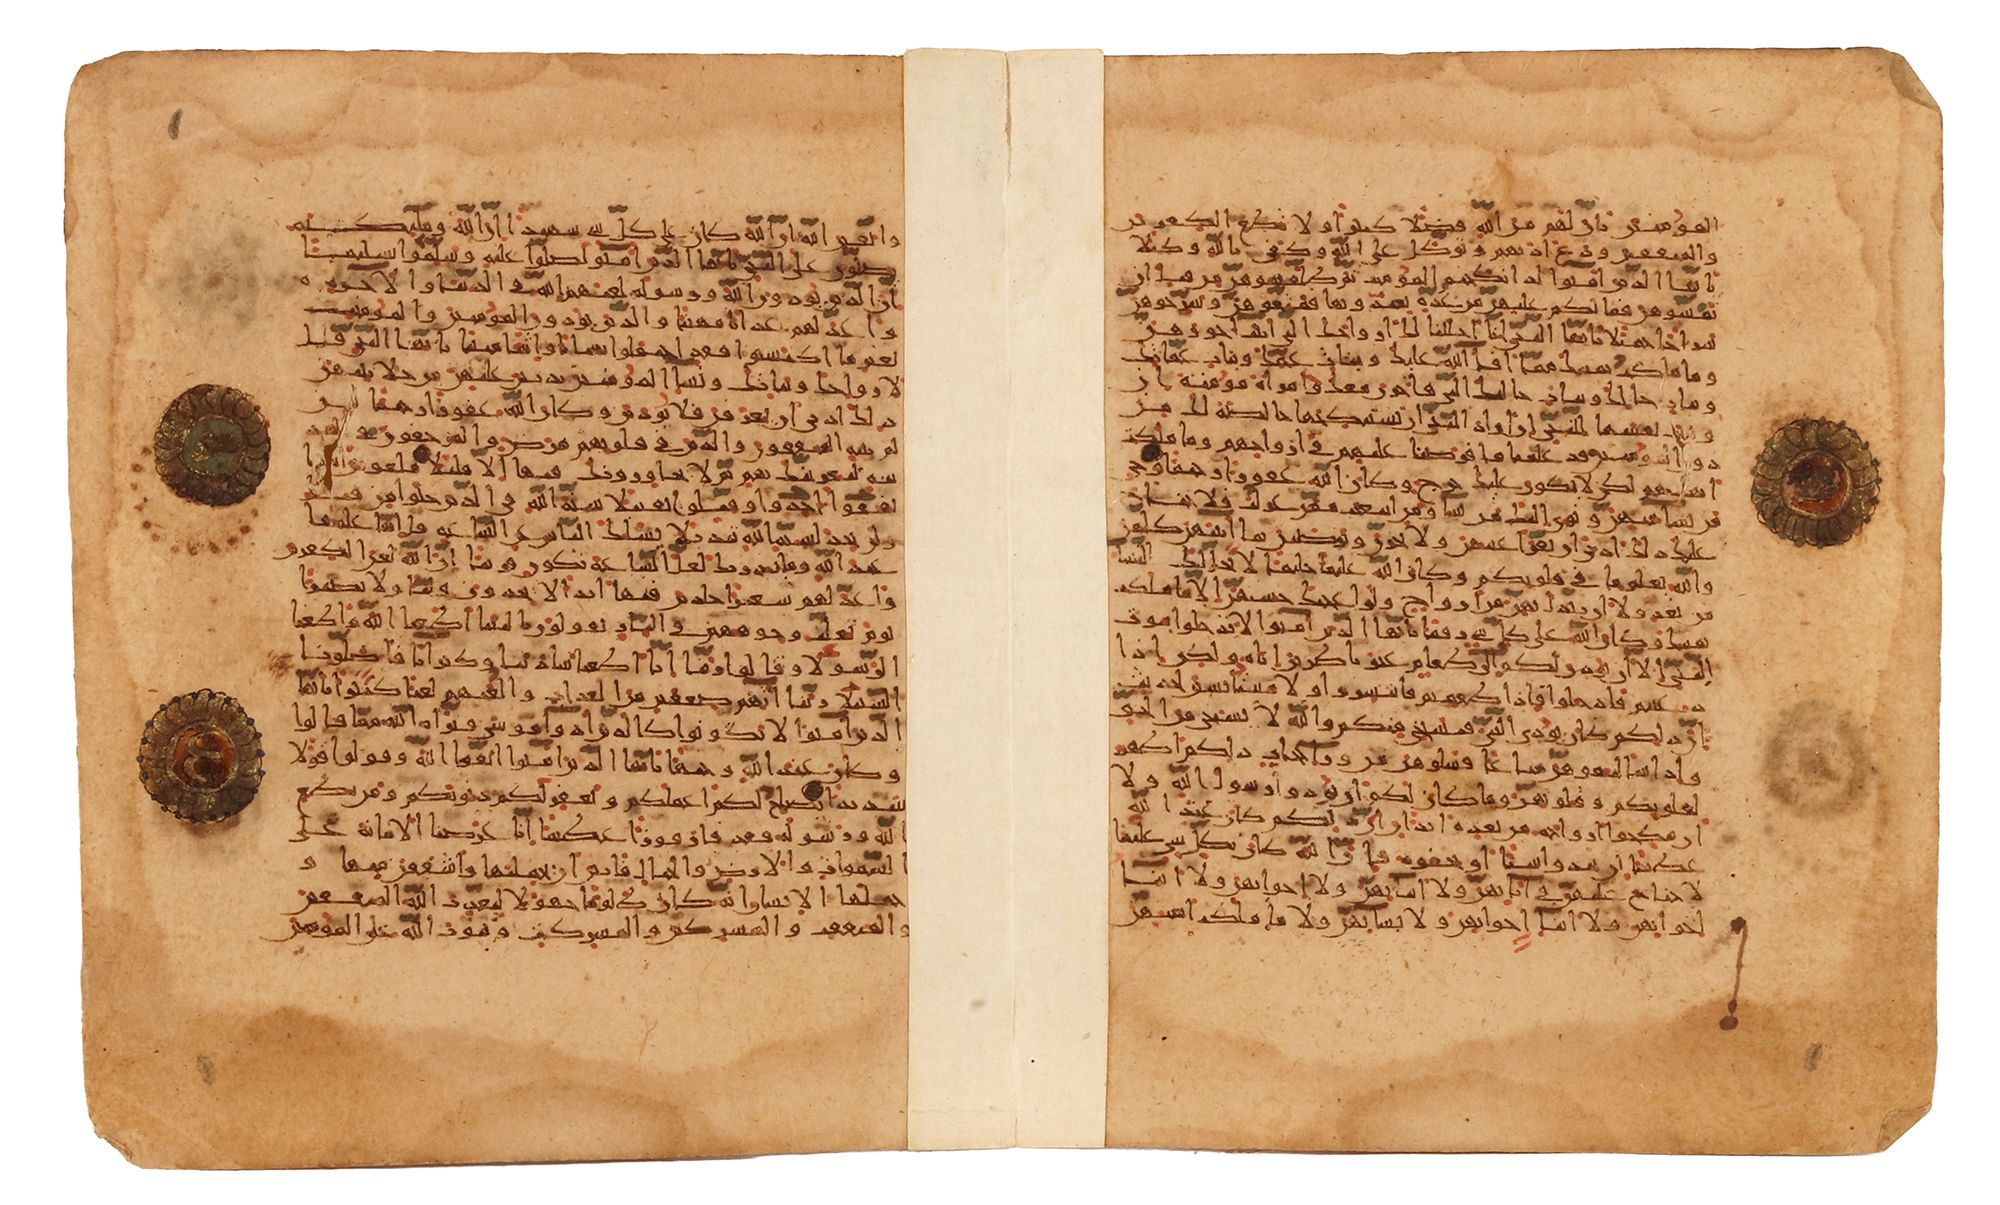 المومنين بان لهم من الله فضلا كبيرا ولا تطع الكفرين
والمنفقين ودع اذيهم وتوكل على الله وكفى بالله وكيلا
يايها الذين امنوا اذا نكحتم المومنت ثم طلقتموهن من قبل ان
تمسوهن فما لكم عليهن من عدة تعتدونها فمتعوهن وسرحوهن
سراحا جميلا يايها النبي انا احللنا لك ازواجك التي اتيت اجورهن
وما ملكت يمينك مما افا الله عليك وبنات عمك وبنات عمتك
وبنات خالك وبنات خلتك التي هاجرن معك وامراة مومنة ان
وهبت نفسها للنبي ان اراد النبي ان يستنكحها خالصة لك من
دون المومنين قد علمنا ما فرضنا عليهم في ازواجهم وما ملكت
ايمنهم لكيلا يكون عليك حرج وكان الله غفورا رحيما ترجي
من تشا منهن وتوي اليك من تشا ومن ابتغيت ممن عزلت فلا جناح
عليك ذلك ادنى ان تقر اعينهن ولا يحزن ويرضين بما اتيتهن كلهن
والله يعلم ما في قلوبكم وكان الله عليما حليما لا يحل لك النسا
من بعد ولا ان تبدل بهن من ازواج ولو اعجبك حسنهن الا ما ملكت
يمينك وكان الله على كل شي رقيبا يايها الذين امنوا لا تدخلوا بيوت
النبي الا ان يوذن لكم الى طعام غير نظرين انيه ولكن اذا
دعيتم فادخلوا فاذا طعمتم فانتشروا ولا مستنسين لحديث
ان ذلكم كان يوذي النبي فيستحي منكم والله لا يستحي من الحق
واذا سالتموهن متعا فسلوهن من ورا حجاب ذلكم اطهر
لقلوبكم وقلوبهن وما كان لكم ان توذوا رسول الله ولا
ان تنكحوا ازواجه من بعده ابدا ان ذلكم كان عند الله
عظيما ان تبدوا شيا او تخفوه فان الله كان بكل شي عليما
لا جناح عليهن في ابايهن ولا ابنايهن ولا اخوانهن ولا ابنا
اخوانهن ولا ابنا اخواتهن ولا نسايهن ولا ما ملكت ايمنهن
واتقين الله ان الله كان على كل شي شهيدا ان الله ومليكته
يصلون على النبي يايها الذين امنوا صلوا عليه وسلموا تسليما
ان الذين يوذون الله ورسوله لعنهم الله في الدنيا والاخرة
واعد لهم عذابا مهينا والذين يوذون المومنين والمومنت
بغير ما اكتسبوا فقد احتملوا بهتنا واثما مبينا يايها النبي قل
لازواجك وبناتك ونسا المومنين يدنين عليهن من جلبيبهن
ذلك ادنى ان يعرفن فلا يوذين وكان الله غفورا رحيما لين
لم ينته المنفقون والذين في قلوبهم مرض والمرجفون في المدينة
لنغرينك بهم ثم لا يجاورونك فيها الا قليلا ملعونين اينما
ثقفوا اخذوا وقتلوا تقتيلا سنة الله في الذين خلوا من قبل
ولن تجد لسنة الله تبديلا يسلك الناس عن الساعة قل انما علمها
عند الله وما يدريك لعل الساعة تكون قريبا ان الله لعن الكفرين
واعد لهم سعيرا خلدين فيها ابدا لا يجدون وليا ولا نصيرا
يوم تقلب وجوههم في النار يقولون يا ليتنا اطعنا الله واطعنا
الرسولا وقالوا ربنا انا اطعنا سادتنا وكبرانا فاضلونا
السبيلا ربنا اتهم ضعفين من العذاب والعنهم لعنا كثيرا يايها
الذين امنوا لا تكونوا كالذين اذوا موسى فبراه الله مما قالوا
وكان عند الله وجيها يايها الذين امنوا اتقوا الله وقولوا قولا
سديدا يصلح لكم اعملكم ويغفر لكم ذنوبكم ومن يطع
الله ورسوله فقد فاز فوزا عظيما انا عرضنا الامانة على
السموات والارض والجبال فابين ان يحملنها واشفقن منها و
حملها الانسان انه كان ظلوما جهولا ليعذب الله المنفقين
والمنفقت والمشركين والمشركت ويتوب الله على المومنين